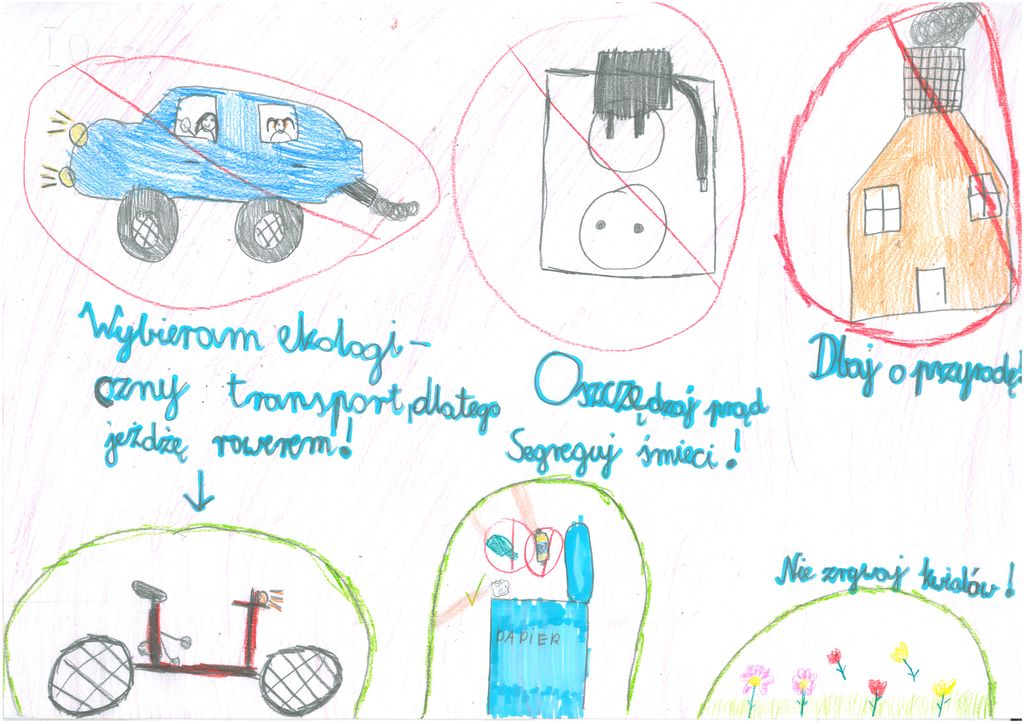 Wybieram ekologi-
czny transport, dlatego
jeżdżę rowerem!
Oszczędzaj prąd
Segreguj śmieci!
Dbaj o przyrodę!
PAPIER
Nie zrywaj kwiatów!